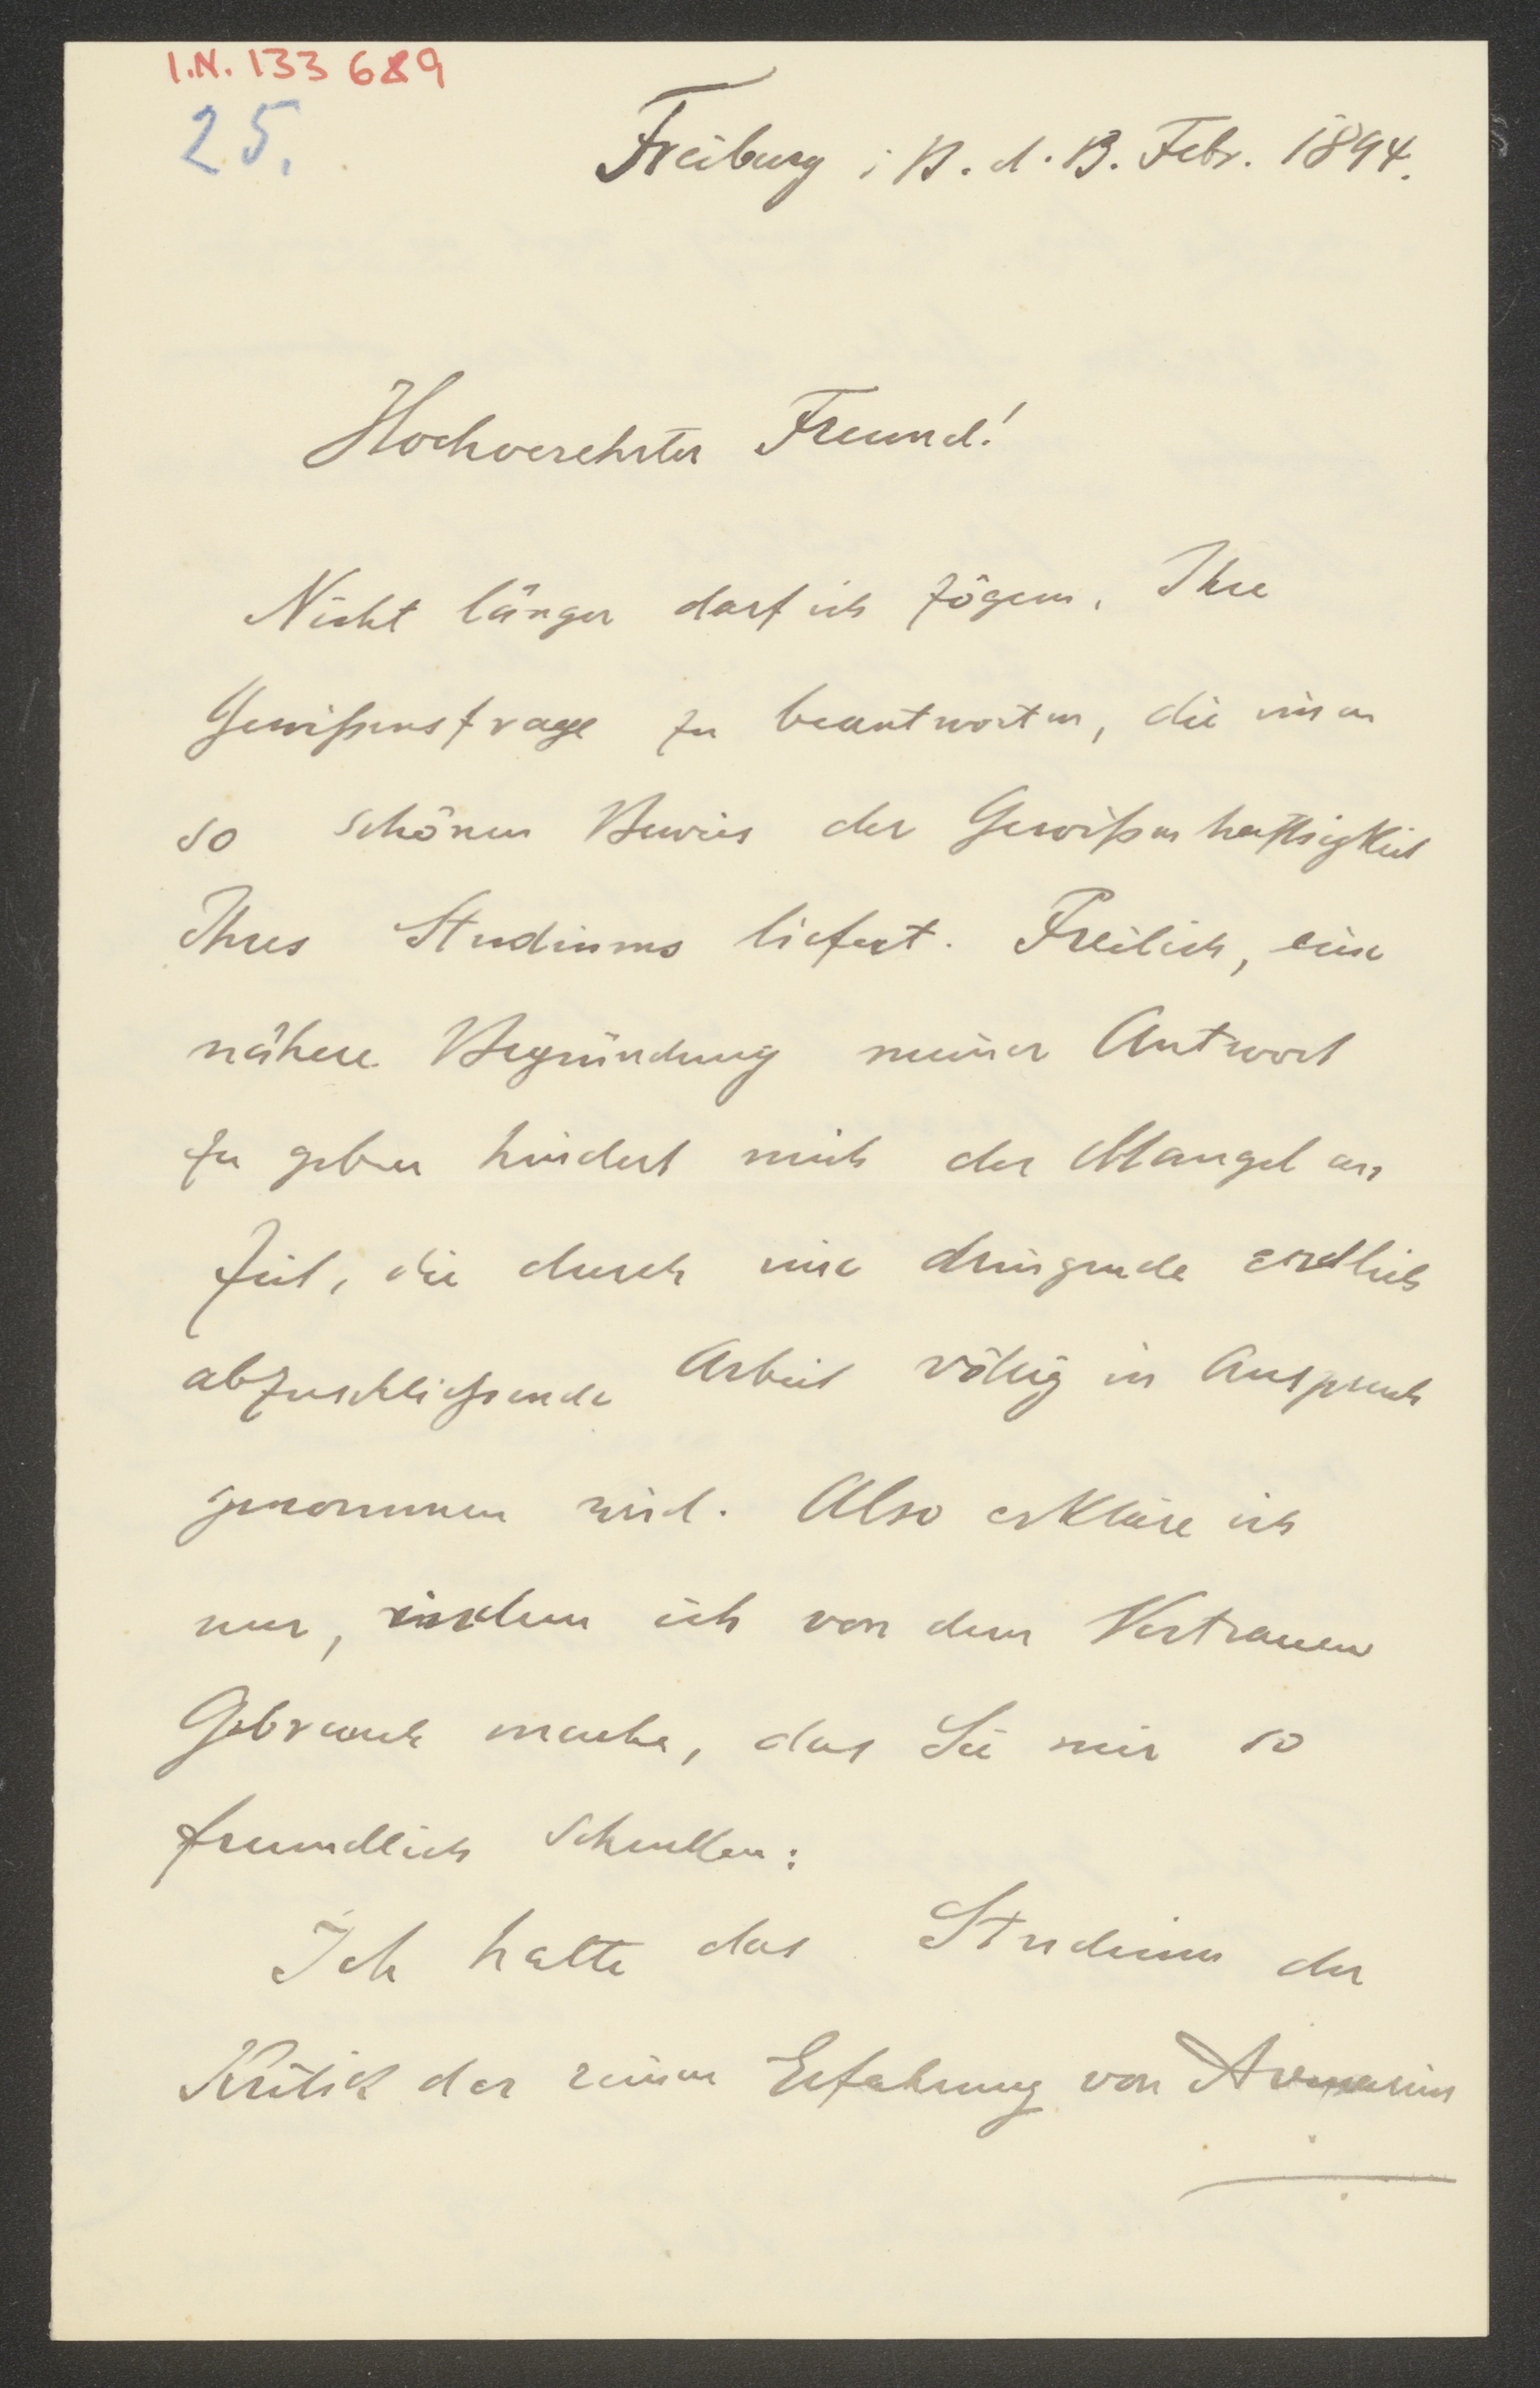 I.N. 133 689
25.
Freiburg i B. d. 13. Febr. 1894.
Hochverehrter Freund!
Nicht länger darf ich zögern, Ihre
Gewißensfrage zu beantworten, die einen
so schönen Beweis der Gewißenhaftigkeit
Ihres Studiums liefert. Freilich, eine
nähere Begründung meiner Antwort
zu geben hindert mich der Mangel an
Zeit, die durch eine dringende endlich
abzuschließende Arbeit völlig in Anspruch
genommen wird. Also erkläre ich
nur, indem ich von dem Vertrauen
Gebrauch mache, das Sie mir so
freundlich schenken:
Ich halte das Studium der
Kritik der reinen Erfahrung von Avenarius